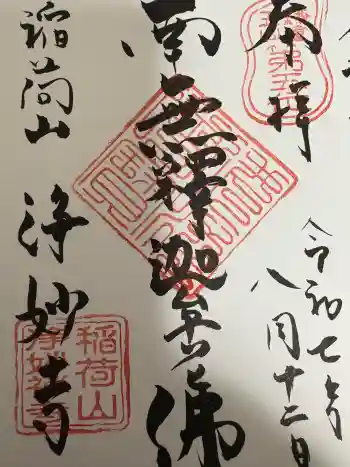 奉拝
令和七年
八月十二日
南無釋迦牟尼佛
稲荷山 浄妙寺
稲荷山
浄妙禅寺